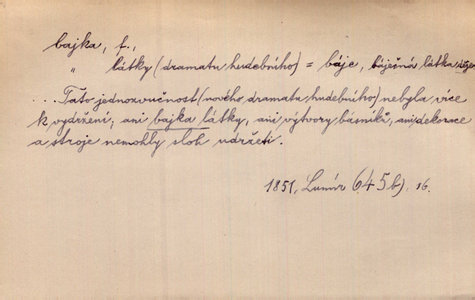 bajka, f.,
" látky (dramatu hudebního) = báje, báječná látka
.... Tato jednozvučnost (nového dramatu hudebního) nebyla více
k vydržení; ani bajka látky, ani výtvory básníků, ani dekorace
a stroje nemohly sloh udržeti.
1851, Lumír 645 b), 16.